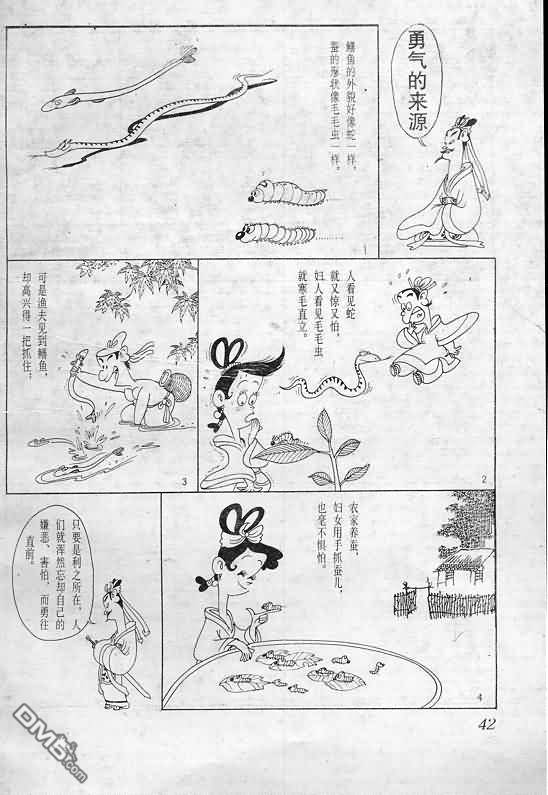 勇气的来源
鳝鱼的外貌好像蛇一样。
蚕的形状像毛毛虫一样。
1
人看见蛇
就又惊又怕，
妇人看见毛毛虫
就寒毛直立。
2
可是渔夫见到鳝鱼，
却高兴得一把抓住；
3
农家养蚕，
妇女用手抓蚕儿，
也毫不惧怕。
4
只要是利之所在，人
们就浑然忘却自己的
嫌恶、害怕，而勇往
直前。
42
DM5.com